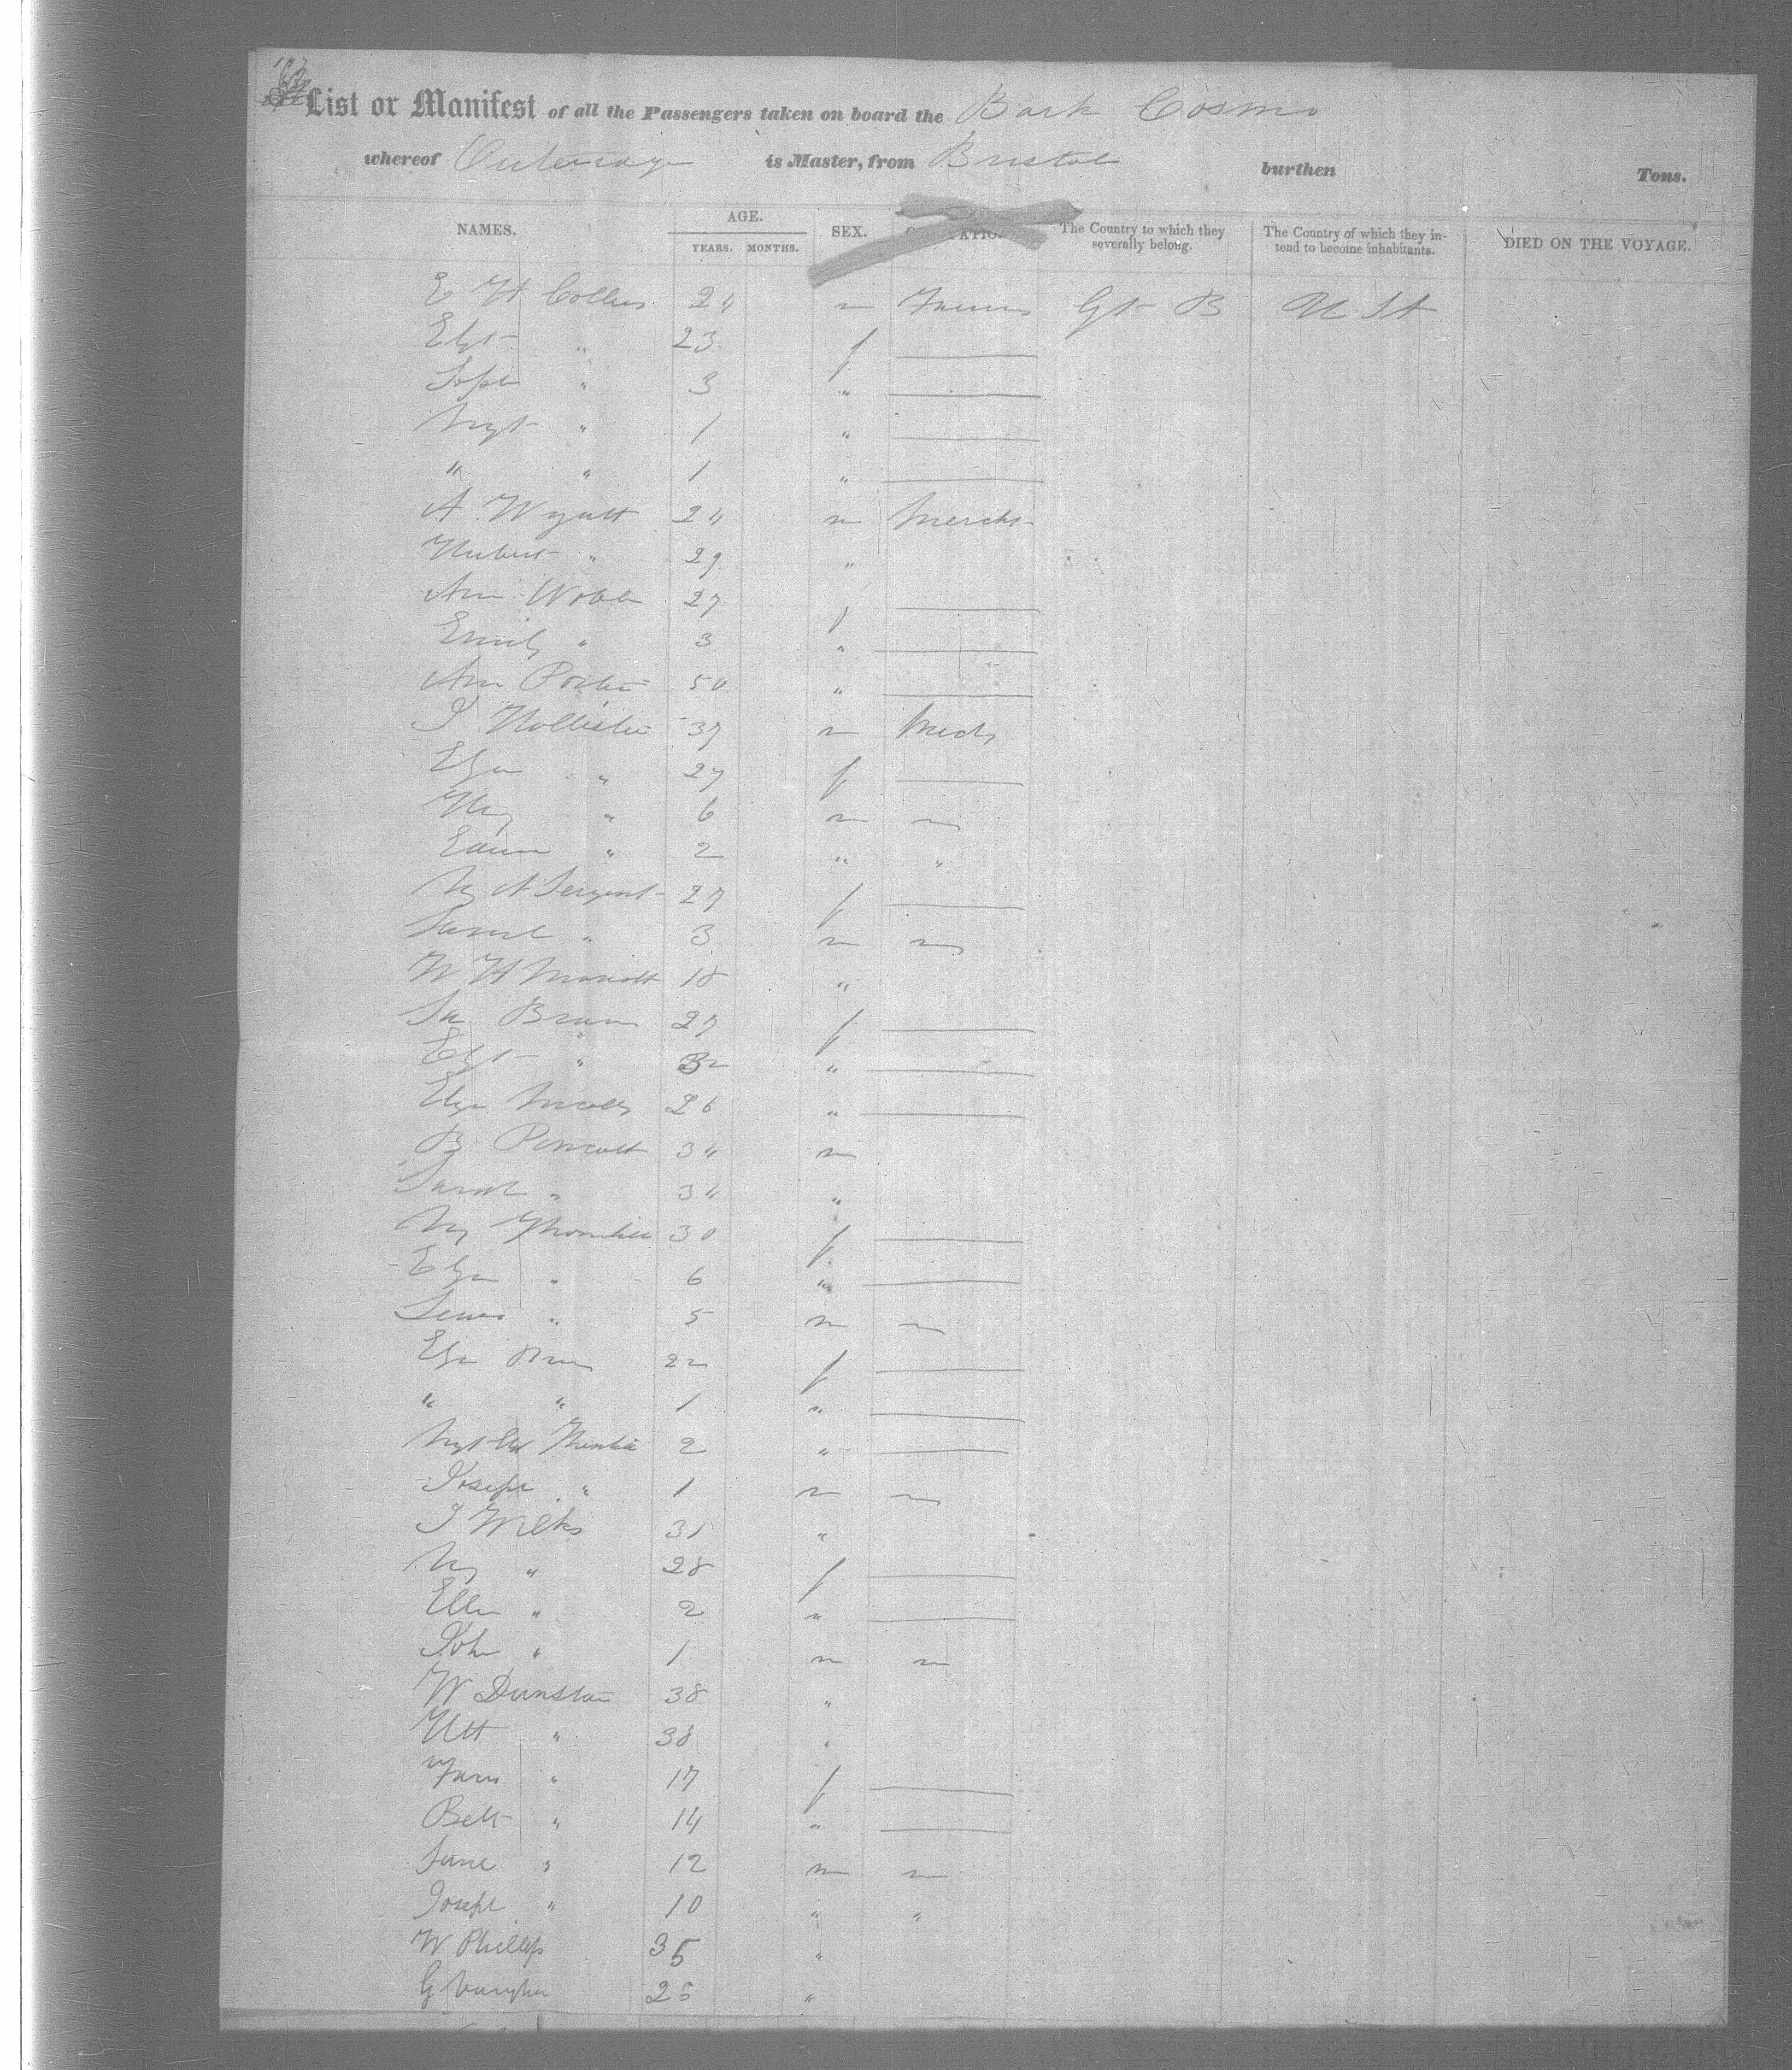 List or Manifest of all the Passengers taken on board the Bark Cosmo
whereof Outerbridge is Master, from Bristol burthen Tons.
NAMES. AGE. YEARS. MONTHS. SEX. OCCUPATION The Country to which they severally belong. The Country of which they intend to become inhabitants. DIED ON THE VOYAGE.
E H Collins 24 m Farmer Gt B U St
Elizt " 23 f
Soph " 3 "
Mgt " 1 "
" " 1 "
A. Wyatt 24 m Mercht
Hubert " 29 "
Ann 27 f
Emily " 3 "
Ann Porter 50 "
J Hollister 37 m Mech
Eliza " 27 f
Hy " 6 m
Edwin " 2 " "
My A Sergent 27 f
Samul " 3 m
W H 18 "
Brown 27 f
Elizt " 32 "
Eliza 26 "
B 34 m
Sarah " 34 "
My 30 f
Eliza " 6 "
Lewis " 5 m
Eliza 22 f
" " 1 "
Mgt 2 "
Joseph " 1 m
J Wilks 31 "
My " 28 f
Ellen " 2 "
John " 1 m
W Dunstan 38 "
" 38 "
" 17 f
Bett " 14 "
Jane " 12 m
Joseph " 10 " "
W Phillips 35 "
G Vaughan 25 "